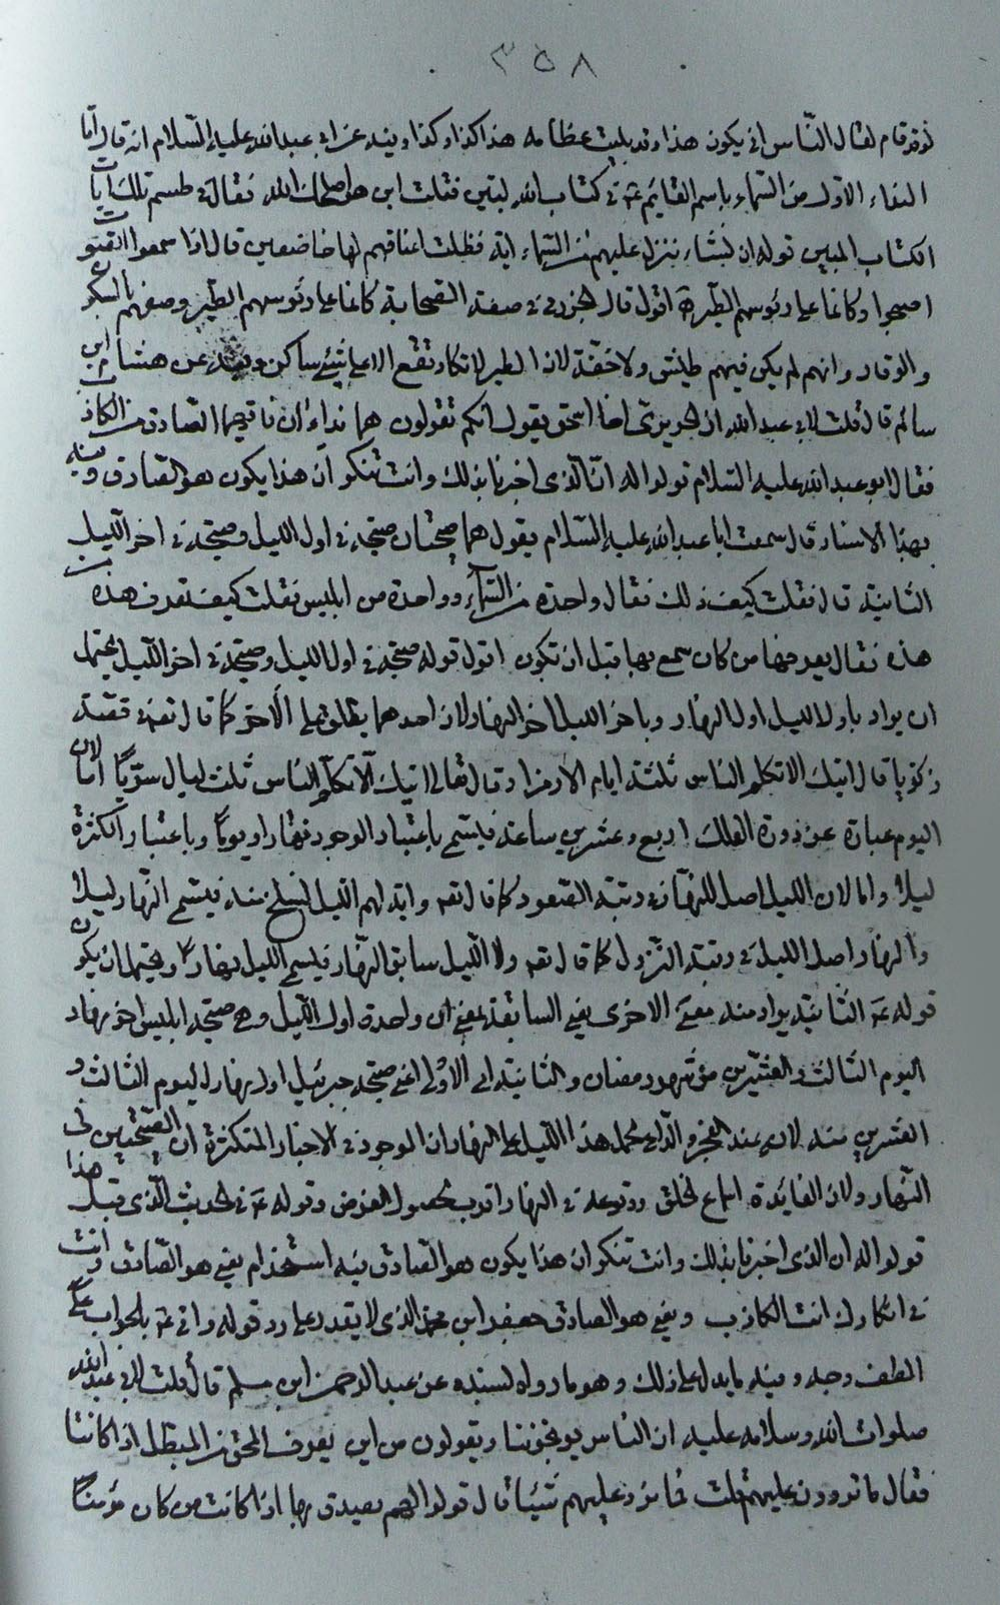 ٣٥٨
لو قد قام لقال النّاس انى يكون هذا وقد بليت عظامه هذا كذا وكذا وفيه عن ابى عبدالله عليه السّلام انه قال اما
النداء الاول من السّماء باسم القايم عَ فى كتاب الله لبين فقلت اين هو اصلحك الله فقال فى طسم تلك ايات
الكتاب المبين قوله ان نشاء ننزل عليهم من السّماء اية فظلت اعناقهم لها خاضعين قال اذا سمعوا الصوت
اصبحوا وكانما على رؤسهم الطّير اقول قال الجزرى فى صفة الصّحابة كانما على رؤسهم الطّير وصفهم بالسكون
والوقار وانهم لم يكن فيهم طيش ولا خفّة لان الطير لا تكاد تقع الا على شئ ساكن وفيه عن هشام ابن
سالم قال قلت لابى عبدالله ان الجريرى اخا اسحق يقول انكم تقولون هما نداءان فايهما الصّادق من الكاذب
فقال ابو عبدالله عليه السّلام قولوا له انّ الّذى اخبرنا بذلك وانت تنكر ان هذا يكون هو الصّادق وفيه
بهذا الاسناد قال سمعت ابا عبدالله عليه السّلام يقول هما صيحتان صيحة فى اول الليل وصيحة فى اخر الليلة
الثانية قال فقلت كيف ذلك فقال واحدة من السّماء وواحدة من ابليس فقلت كيف تعرف هذه من
هذه فقال يعرفها من كان سمع بها قبل ان تكون اقول قوله صيحة فى اول الليل وصيحة فى اخر اللّيل يحتمل
ان يراد باول الليل اول النهار وباخر الليل اخر النهار ولان احدهما يطلق على الأخر كما قال تعه فى قصّة
زكريا قال ايتك الا تكلم الناس ثلثة ايام الا رمزا وقال تعالى ايتك الّا تكلّم النّاس ثلث ليال سويّا امّا لان
اليوم عبارة عن دورة الفلك اربع وعشرين ساعة فيسمّى باعتبار الوجود نهارا ويومًا وباعتبار الكثرة
ليلا واما لان الليل اصل للنّهار فى رتبة الصّعود كما قال تعه واية لهم اللّيل نسلخ منه فيسمّى النّهار ليلا
والنهار اصل الليل فى رتبة النّزول كما قال تعه ولا اللّيل سابق النّهار فيسمى الليل نهارا ويحتمل ان يكون
قوله عَ الثّانية يراد منه معنى الاخرى يعنى السابقة بمعنى ان واحدة اول اللّيل وهى صيحة ابليس اخر نهار
اليوم الثّالث والعشرين من شهر رمضان والثّانية اى الأولى اعنى صيحة جبرئيل اول نهار اليوم الثالث و
العشرين منه لانه عند الفجر والدّاعى لحمل هذا اللّيل على النهار ان الموجود فى الاخبار المتكثرة ان الصّيحتين فى
النّهار ولان الفايدة اسماع الخلق ووقوعه فى النهار اقرب لحصول الغرض وقوله عَ فى الحديث الّذى قبل هذا
قولوا له ان الذى اخبرنا بذلك وانت تنكر ان هذا يكون هو الصّادق فيه استخدام يعنى هو الصّادق وانت
فى انكارك انت الكاذب ويعنى هو الصادق جعفر ابن محمّد الذى لا يقدر على رد قوله واتى عَ بالجواب على
الطف وجه وفيه ما يدل على ذلك وهو ما رواه بسنده عن عبد الرحمن ابن مسلم قال قلت لابى عبد الله
صلوات الله وسلامه عليه ان النّاس يوبّخوننا ويقولون من اين يعرف المحق من المبطل اذا كانتا
فقال ما تردون عليهم قلت فما نرد عليهم شيئا قال قولوا لهم يصدق بها اذا كانت من كان مؤمنًا